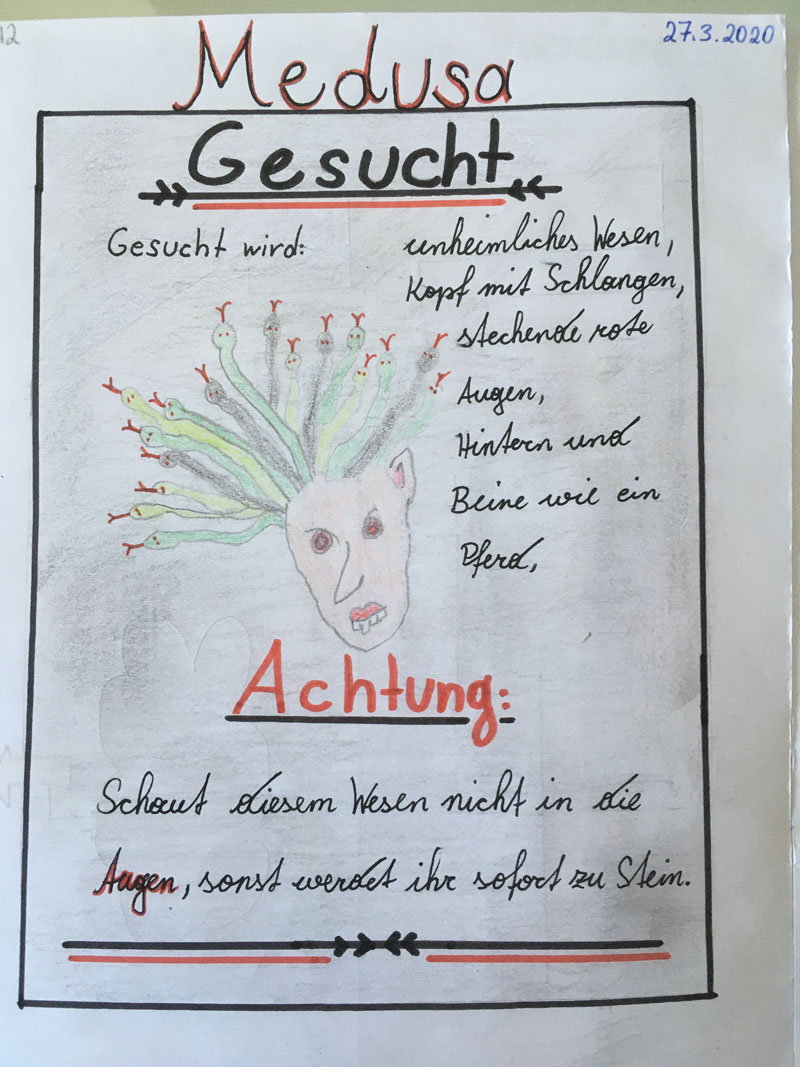 12
27.3.2020
Medusa
Gesucht
Gesucht wird:
unheimliches Wesen,
Kopf mit Schlangen,
stechende rote
Augen,
Hintern und
Beine wie ein
Pferd,
Achtung:
Schaut diesem Wesen nicht in die
Augen, sonst werdet ihr sofort zu Stein.